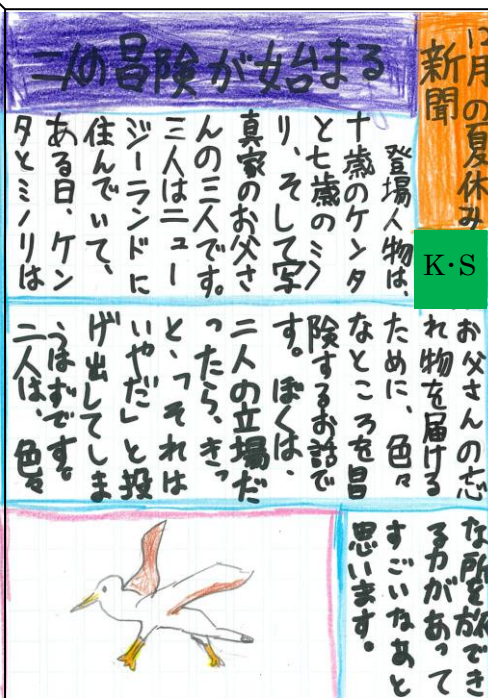 12月の夏休み
新聞
K·S
二人の冒険が始まる
登場人物は、
十歳のケンタ
と七歳のミノ
リ、そして写
真家のお父さ
んの三人です。
三人はニュー
ジーランドに
住んでいて、
ある日、ケン
タとミノリは
お父さんの忘
れ物を届ける
ために、色々
なところを冒
険するお話で
す。ぼくは、
二人の立場だ
ったら、きっ
と、「それは
いやだ」と投
げ出してしま
うはずです。
二人は、色々
な所を旅でき
る力があって
すごいなあと
思います。